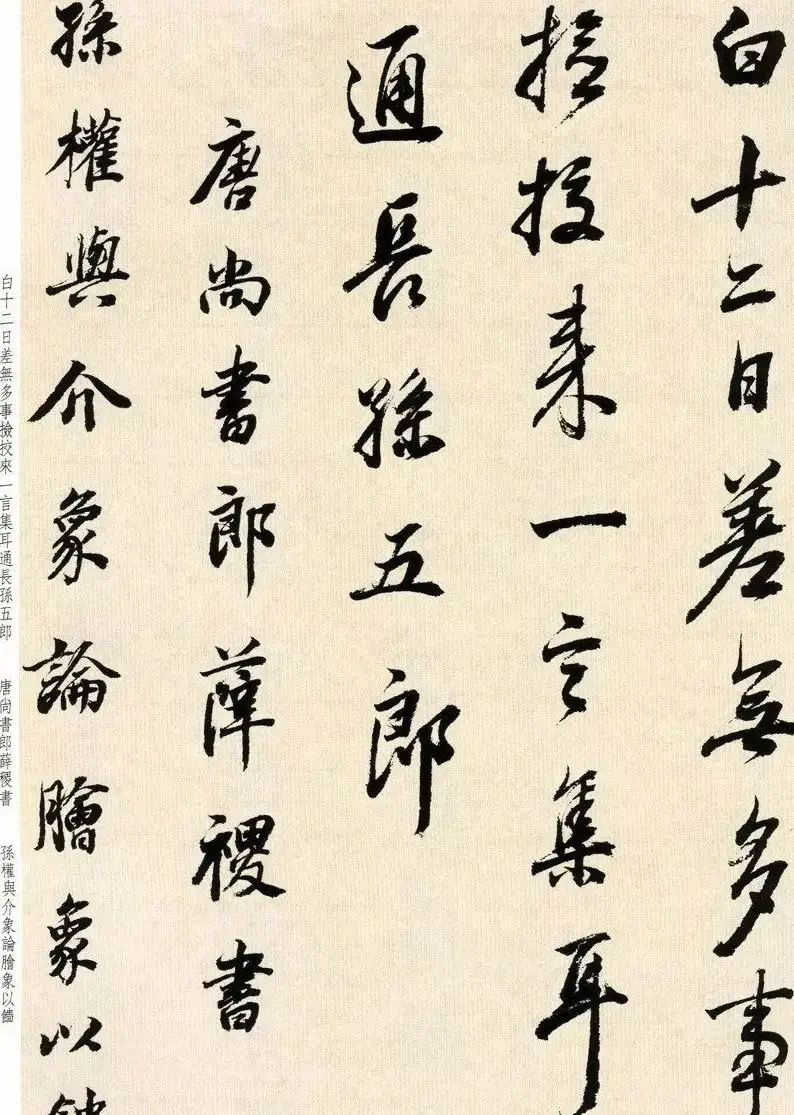 白十二日差無多事
撿挍来一言集耳
通長孫五郎
唐尚書郎薛稷書
孫權與介象論膾象以
白十二日差無多事撿挍來一言集耳通長孫五郎 唐尚書郎薛稷書 孫權與介象論膾象以鱠